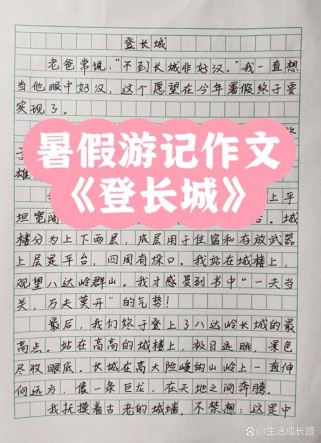 登长城
老爸常说:“不到长城非好汉。”我一直想
当他眼中好汉,这个愿望在今年暑假终于要
实现了。
于
雄
暑假游记作文
《登长城》
上平
坦宽阔
城
楼分为上下两层,底层用于住宿和存放武器
上层是平台,四周有垛口。我站在城楼上,
观望八达岭群山。我才感受到书中“一夫当
关,万夫莫开”的气势!
最后,我们终于登上了八达岭长城的最
高点。站在高高的城楼上,极目远眺,景色
尽收眼底。长城在高大险峻的山岭上一直伸
向远方,像一条巨龙,在天地之间奔腾。
我抚摸着古老的城墙,不禁想:这是中
生活成长路